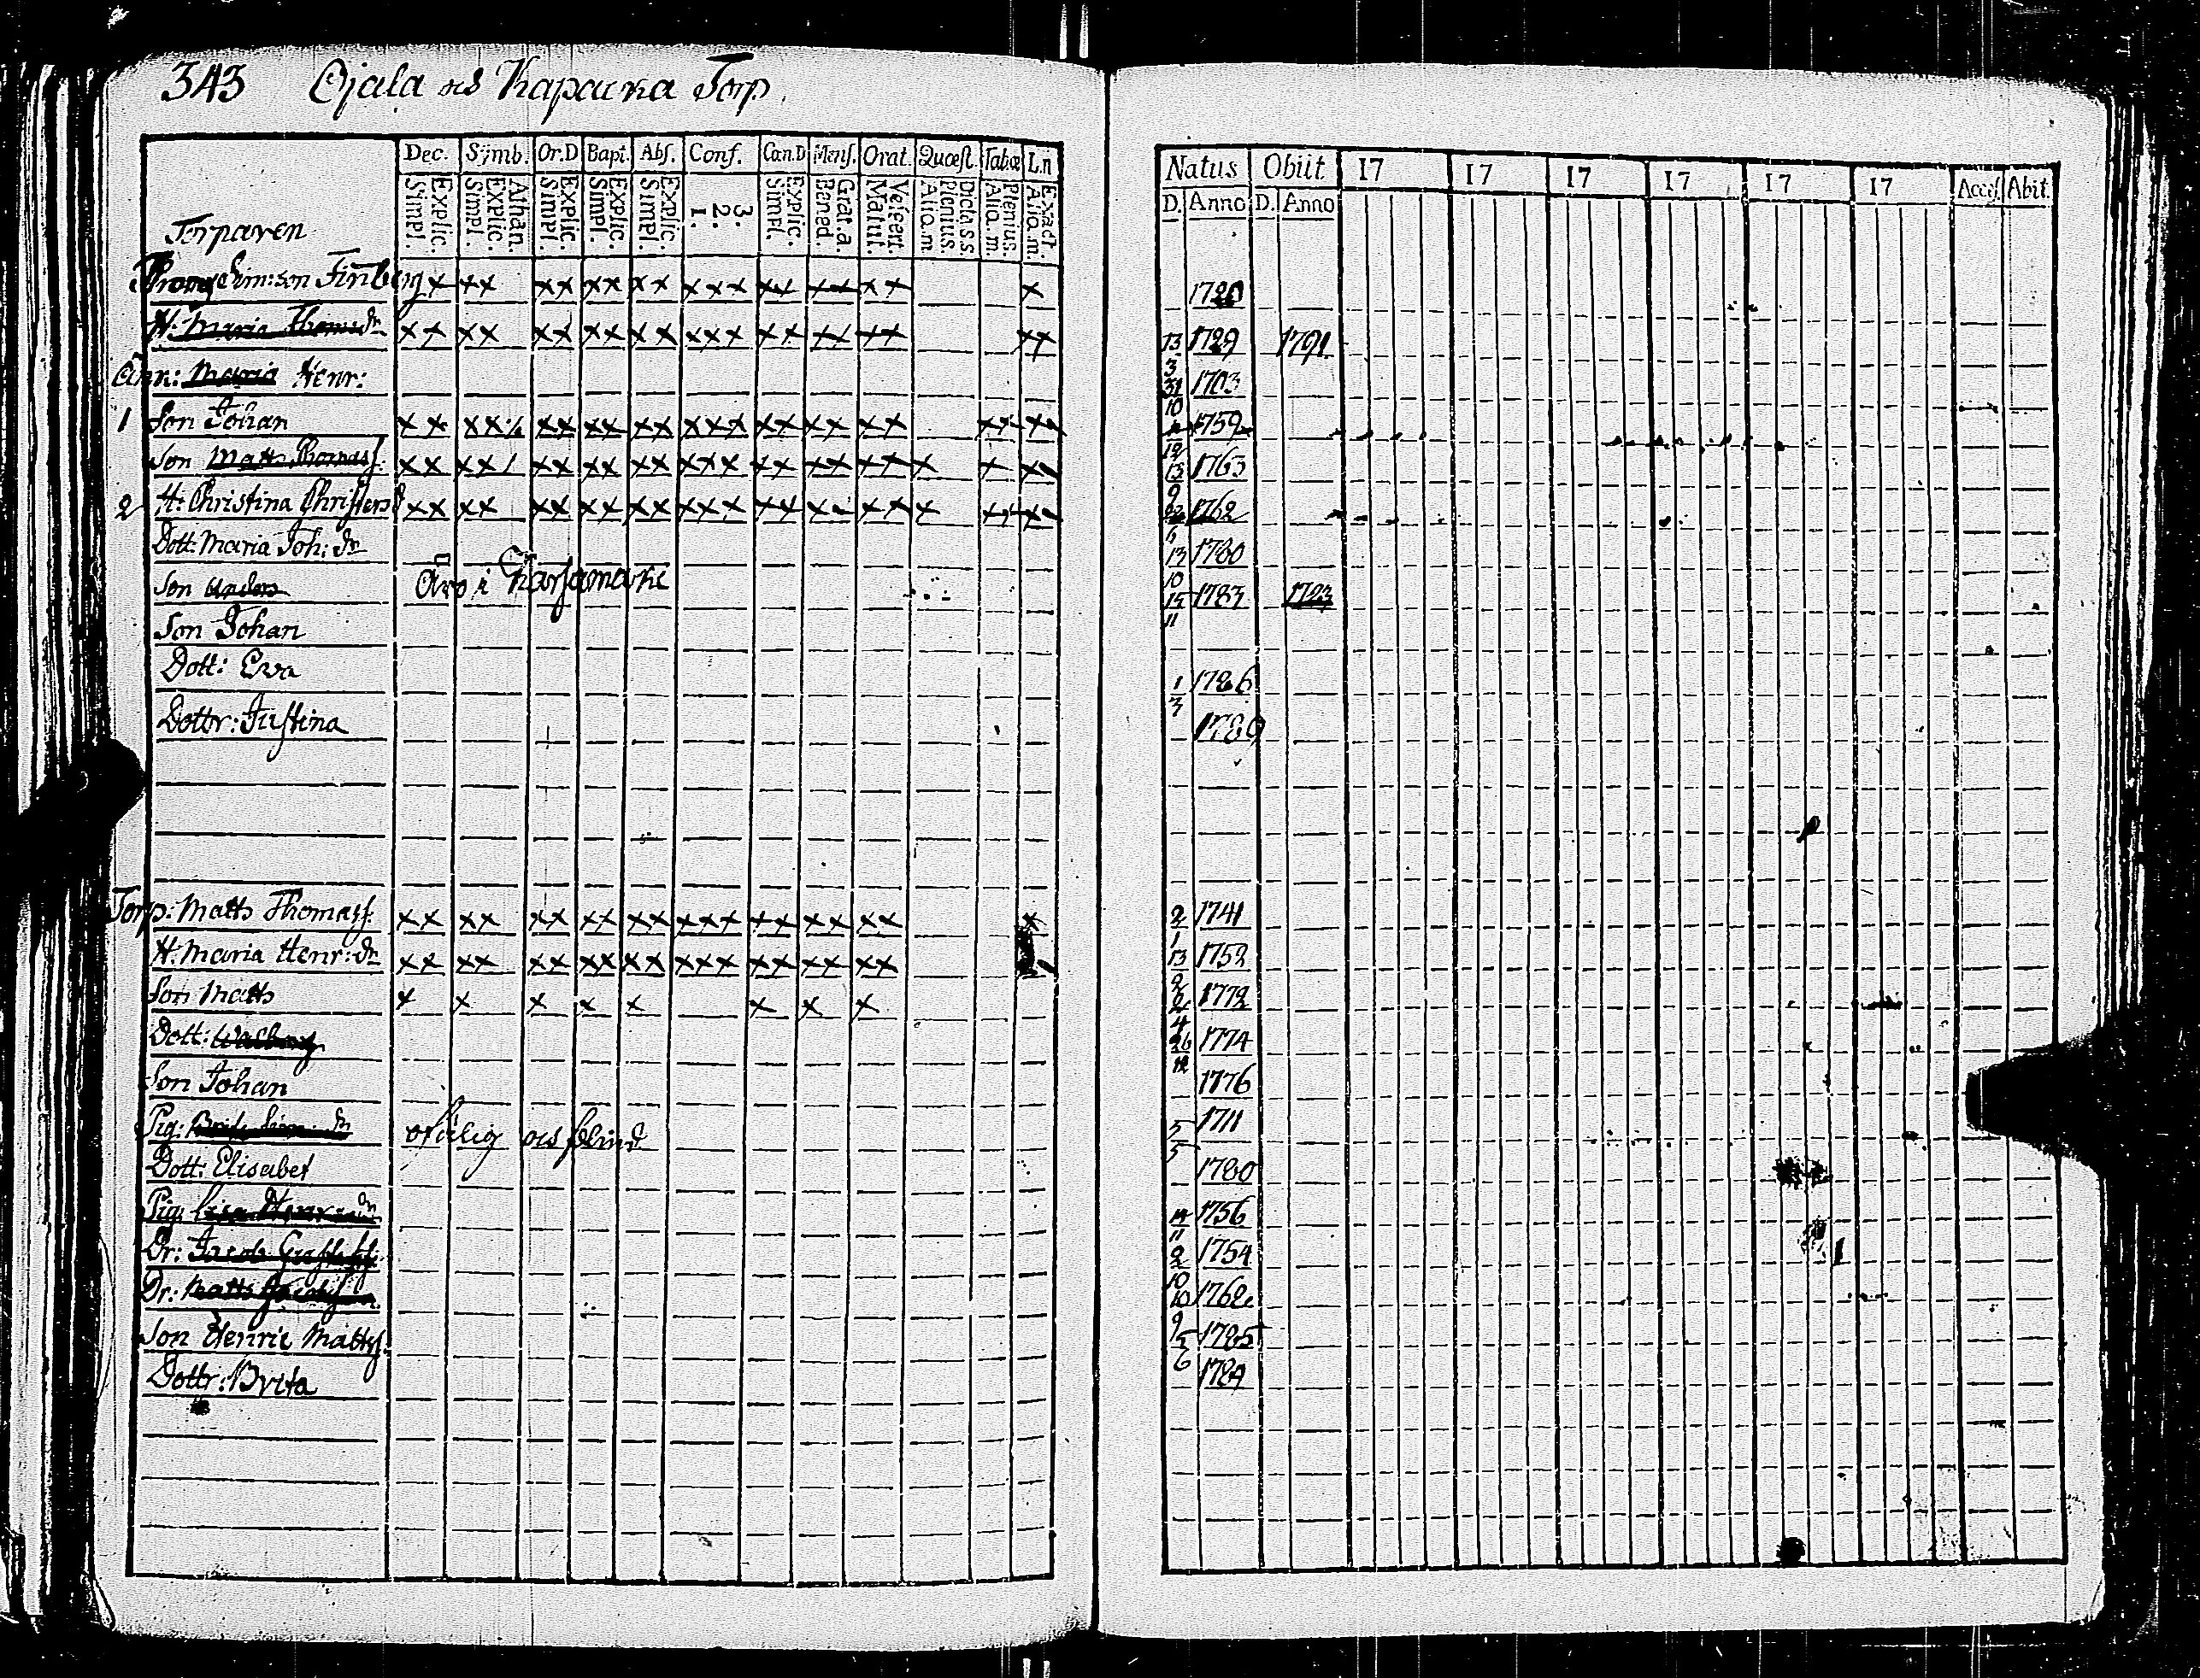 343 Ojala och Kapauna Torp
Dec. Symb. Or.D Bapt. Abs. Conf. Can.D Mens. Orat. Quæst. Tabæ L.n
Explic. Simpl. Athan. Explic. Simpl. Explic. Simpl. Explic. Simpl. Explic. Simpl. 3. 2. 1. Explic. Simpl. Grat. a. Bened. Vespert. Matut. Dicta s.s. Plenius. Aliq. m. Plenius. Aliq. m. Exact. Aliq. m.
Natus Obiit 17 17 17 17 17 17 Acces. Abit.
D. Anno D. Anno
Torparen
Thomas Sim:son Finberg x xx xx xx xx xxx xx xx xx x 1720
H: Maria Thomædr xx xx xx xx xx xxx xx xx xx xx 13 3 1729 1791
Ank: Maria Henr: 31 10 1703
1 Son Johan xx xx xx xx xx xxx xx xx xx xx xx 12 1759
Son Matts Thomass. xx xx xx xx xx xxx xx xx xx x x xx 13 9 1763
2 H: Christina Christersd xx xx xx xx xx xxx xx xx xx x xx xx 1762
Dott: Maria Joh: dr 13 10 1780
Son Anders i 15 11 1783 1783
Son Johan
Dott: Eva 1 3 1786
Dottr: Justina 1789
Torp: Matts Thomass. xx xx xx xx xx xxx xx xx xx x 2 1 1741
H. Maria Henr: dr xx xx xx xx xx xxx xx xx xx 13 2 1752
Son Matts x x x x x x x x 4 1772
Dott: Walborg 26 12 1774
Son Johan 1776
Pig: Brita Sim: dr ofärlig och blind 5 5 1711
Dott: Elisabet 1780
Pig: Lisa Henrics dr 14 11 1756
Dr: Jacob Gustafss. 2 10 1754
Dr: Matts 10 9 1762
Son Henric Mattss. 5 6 1785
Dottr: Brita 1789